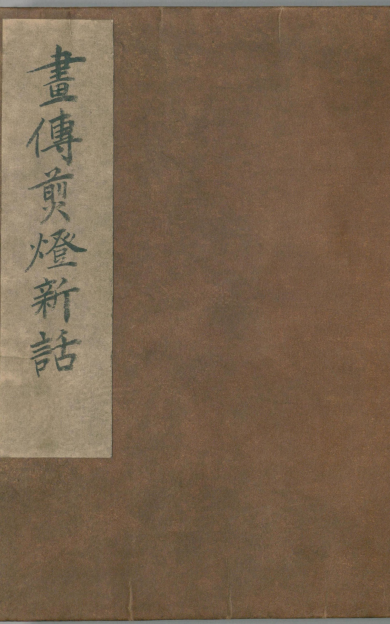 畫傳剪燈新話